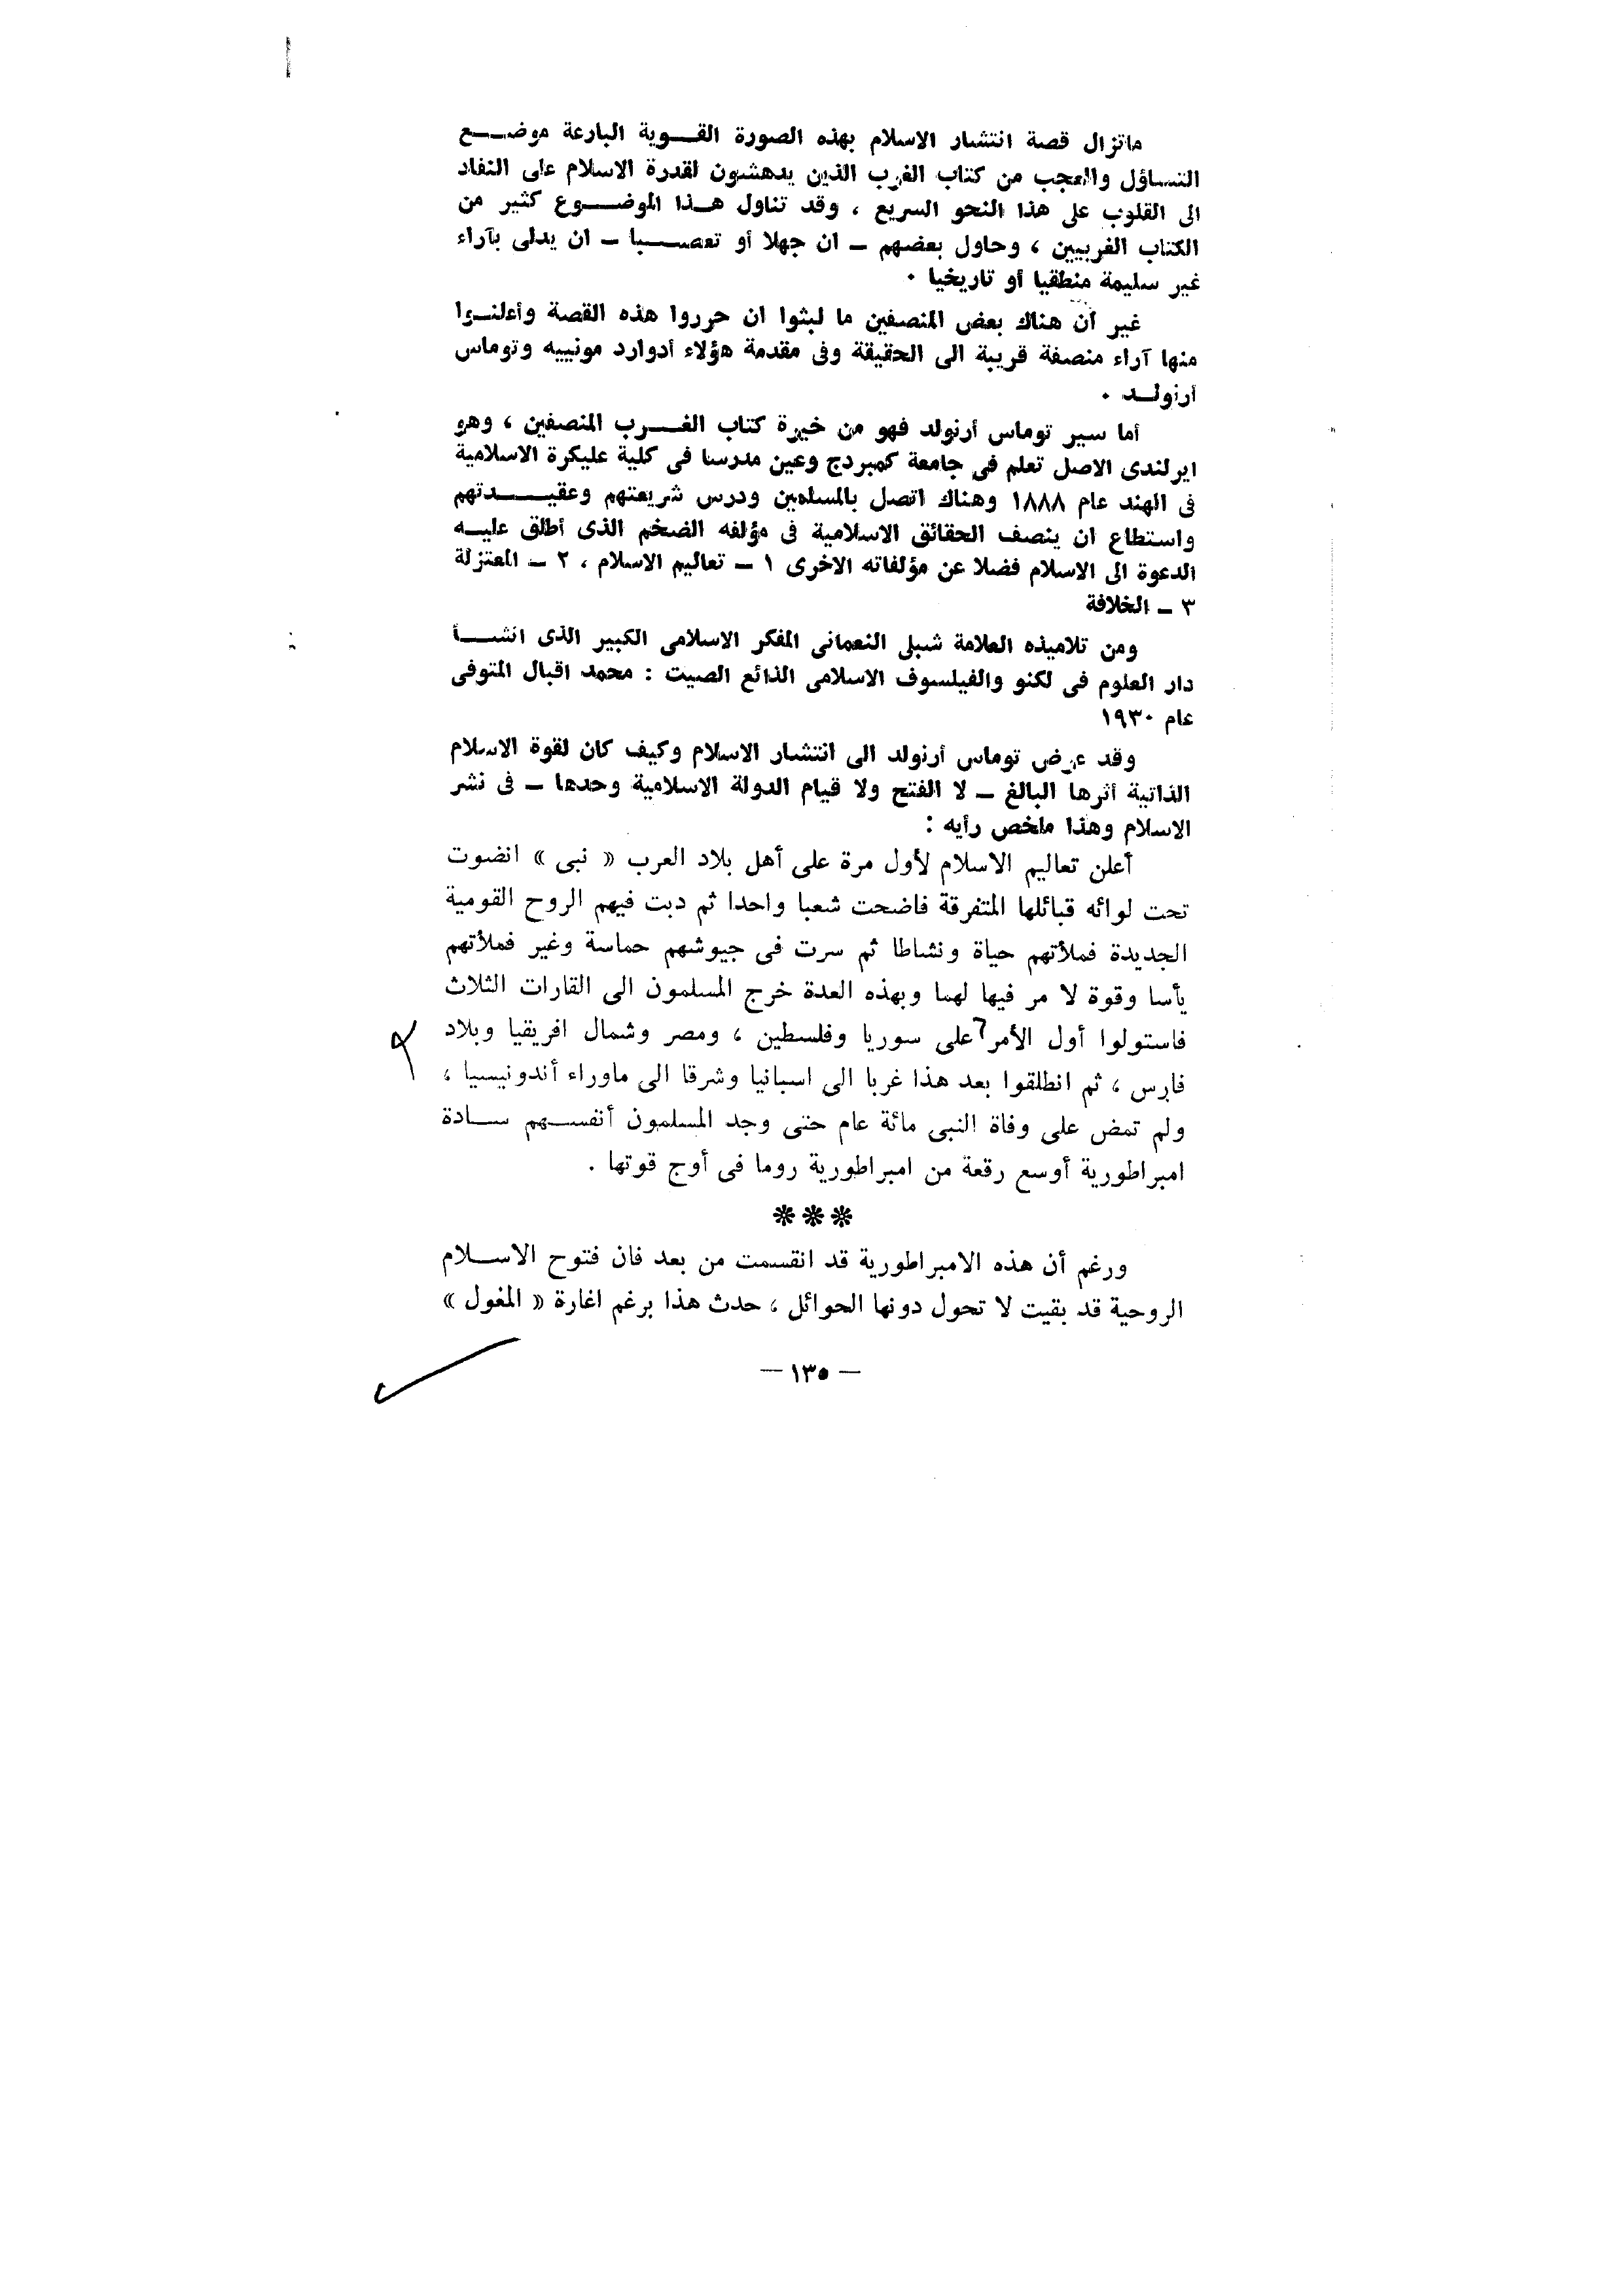 ماتزال قصة انتشار الاسلام بهذه الصورة القوية البارعة موضع
التساؤل والعجب من كتاب الغرب الذين يدهشون لقدرة الاسلام على النفاد
الى القلوب على هذا النحو السريع ، وقد تناول هذا الموضوع كثير من
الكتاب الغربيين ، وحاول بعضهم – ان جهلا أو تعصبا – ان يدلى بآراء
غير سليمة منطقيا أو تاريخيا .
غير أن هناك بعض المنصفين ما لبثوا ان حرروا هذه القصة وأعلنوا
منها آراء منصفة قريبة الى الحقيقة وفى مقدمة هؤلاء أدوارد مونييه وتوماس
ارنولد .
أما سير توماس أرنولد فهو من خيرة كتاب الغرب المنصفين ، وهو
ايرلندى الاصل تعلم فى جامعة كمبردج وعين مدرسا فى كلية عليكرة الاسلامية
فى الهند عام ١٨٨٨ وهناك اتصل بالمسلمين ودرس شريعتهم وعقيدتهم
واستطاع ان ينصف الحقائق الاسلامية فى مؤلفه الضخم الذى أطلق عليه
الدعوة الى الاسلام فضلا عن مؤلفاته الاخرى ١ – تعاليم الاسلام ، ٢ – المعتزلة
٣ – الخلافة
ومن تلاميذه العلامة شبلى النعمانى المفكر الاسلامى الكبير الذى انشأ
دار العلوم فى لكنو والفيلسوف الاسلامى الذائع الصيت : محمد اقبال المتوفى
عام ١٩٣٠
وقد عرض توماس أرنولد الى انتشار الاسلام وكيف كان لقوة الاسلام
الذاتية أثرها البالغ – لا الفتح ولا قيام الدولة الاسلامية وحدها – فى نشر
الاسلام وهذا ملخص رأيه :
أعلن تعاليم الاسلام لأول مرة على أهل بلاد العرب « نبى » انضوت
تحت لوائه قبائلها المتفرقة فاضحت شعبا واحدا ثم دبت فيهم الروح القومية
الجديدة فملأتهم حياة ونشاطا ثم سرت فى جيوشهم حماسة وغير فملأتهم
يأسا وقوة لا مر فيها لهما وبهذه العدة خرج المسلمون الى القارات الثلاث
فاستولوا أول الأمر على سوريا وفلسطين ، ومصر وشمال افريقيا وبلاد
فارس ، ثم انطلقوا بعد هذا غربا الى اسبانيا وشرقا الى ماوراء أندونيسيا ،
ولم تمض على وفاة النبى مائة عام حتى وجد المسلمون أنفسهم سادة
امبراطورية أوسع رقعة من امبراطورية روما فى أوج قوتها .
***
ورغم أن هذه الامبراطورية قد انقسمت من بعد فان فتوح الاسلام
الروحية قد بقيت لا تحول دونها الحوائل ، حدث هذا برغم اغارة « المغول »
— ١٣٥ —